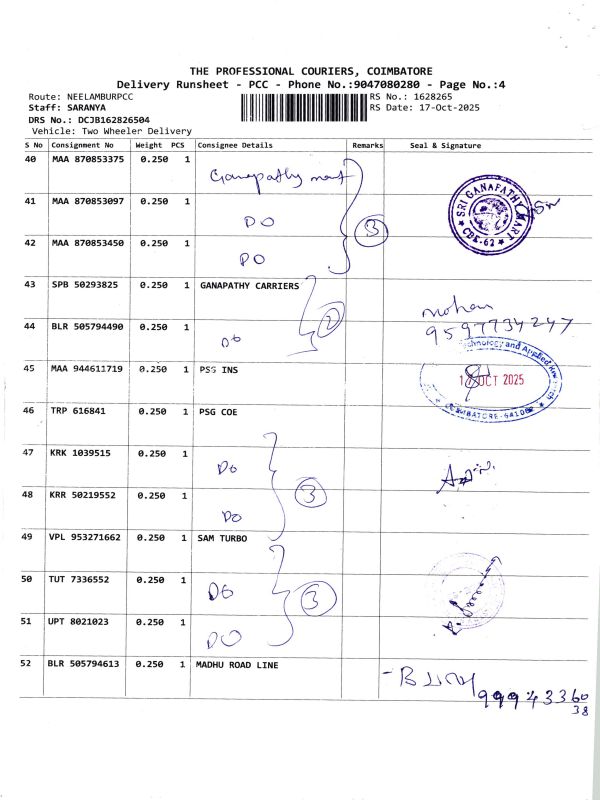 THE PROFESSIONAL COURIERS, COIMBATORE
Delivery Runsheet - PCC - Phone No.:9047080280 - Page No.:4
Route: NEELAMBURPCC RS No.: 1628265
Staff: SARANYA RS Date: 17-Oct-2025
DRS No.: DCJB162826504
Vehicle: Two Wheeler Delivery
S No Consignment No Weight PCS Consignee Details Remarks Seal & Signature
40 MAA 870853375 0.250 1 Ganapathy mart
41 MAA 870853097 0.250 1 DO 3 SRI GANAPATHY MART CBE-62
42 MAA 870853450 0.250 1 DO
43 SPB 50293825 0.250 1 GANAPATHY CARRIERS mohan
44 BLR 505794490 0.250 1 DO 2 9597734247
45 MAA 944611719 0.250 1 PSG INS 17 OCT 2025
46 TRP 616841 0.250 1 PSG COE
47 KRK 1039515 0.250 1 DO
48 KRR 50219552 0.250 1 DO 3
49 VPL 953271662 0.250 1 SAM TURBO
50 TUT 7336552 0.250 1 DO 3
51 UPT 8021023 0.250 1 DO
52 BLR 505794613 0.250 1 MADHU ROAD LINE
99943360
38